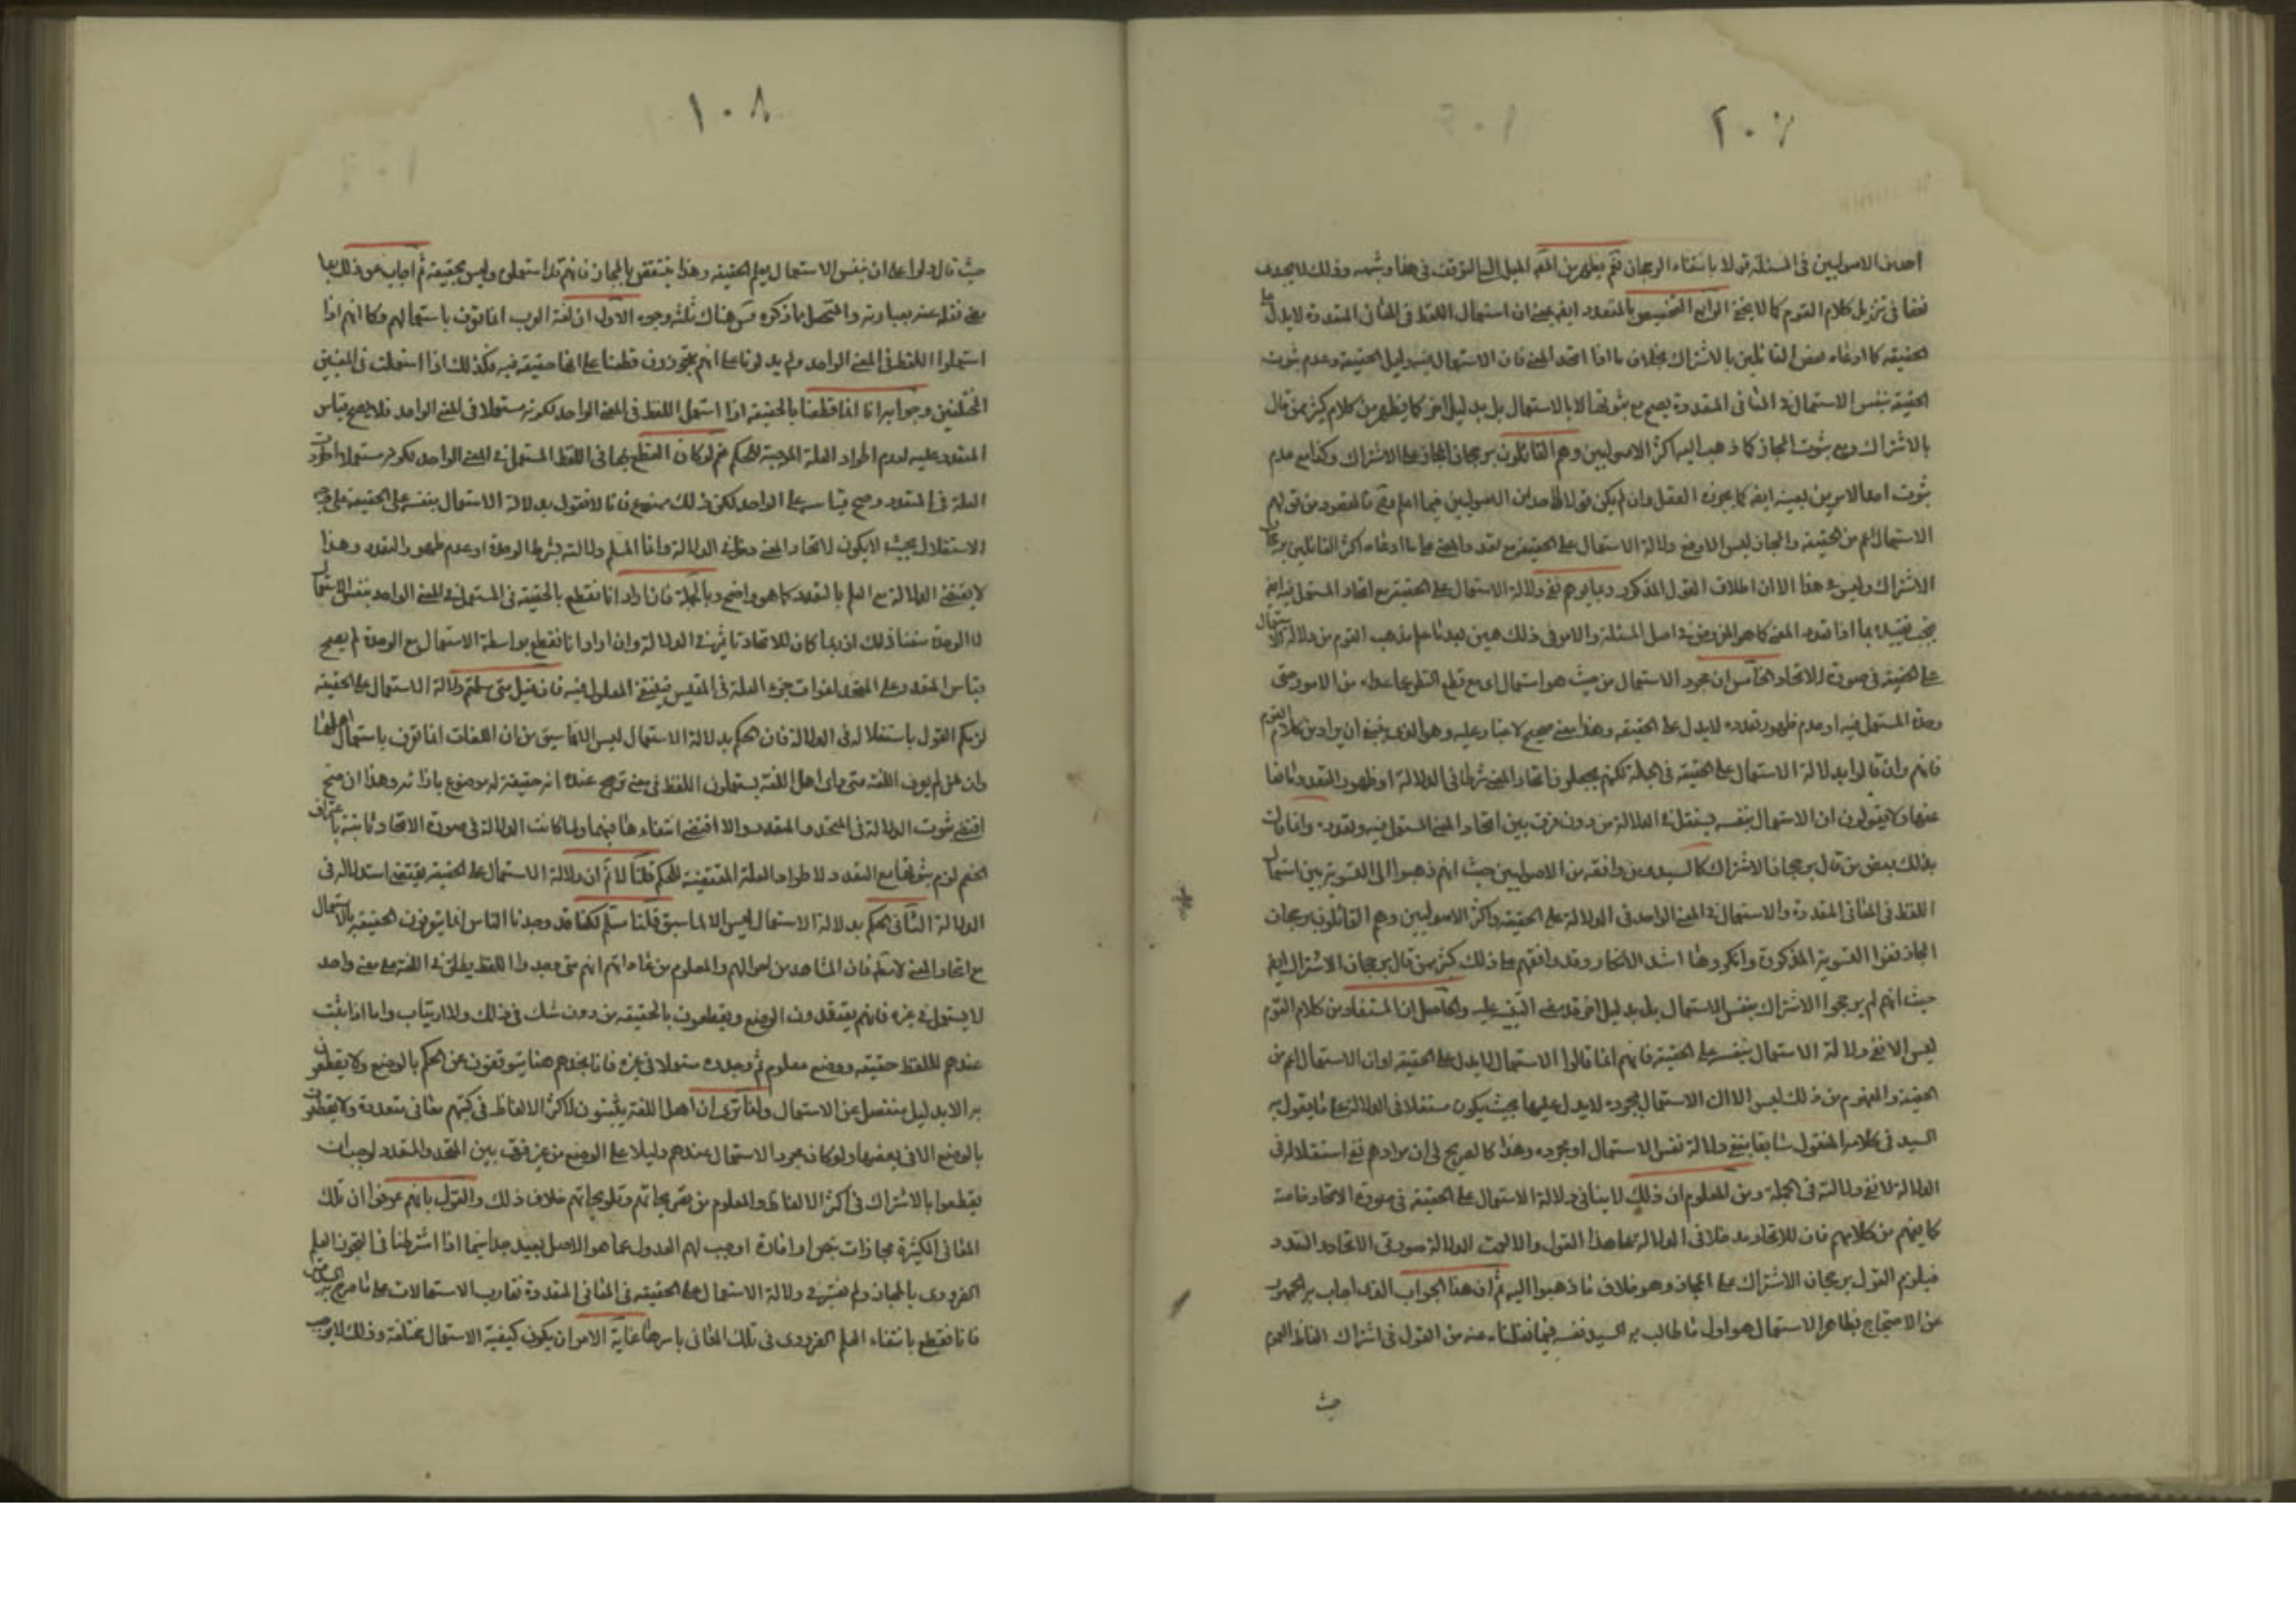 احد من الاصوليين في المسئلة قولا بانتفاء الرجحان نعم يظهر من الميل الى التوقف في هذا وشبهه وذلك لا يجدى
نفعا في تنزيل كلام القوم كما لا يخفى الرابع التخصيص بالمتعدد ايضا بمعنى ان استعمال اللفظ في المعانى المتعددة لا يدل على
الحقيقة كما ادعاه بعض القائلين بالاشتراك بخلاف ما اذا اتحد المعنى فان الاستعمال فيه دليل الحقيقة وعدم ثبوت
الحقيقة بنفس الاستعمال في المعانى المتعددة يصح مع ثبوتها لا بالاستعمال بل بدليل اخر كما يظهر من كلام كثير ممن قال
بالاشتراك ومع ثبوت المجاز كما ذهب اليه اكثر الاصوليين وهم القائلون برجحان المجاز على الاشتراك وكذا مع عدم
ثبوت احد الامرين بعينه ايضا كما يجوزه العقل وان لم يكن قولا لاحد من الاصوليين فيما اعلم فالمقصود من قولهم
الاستعمال اعم من الحقيقة والمجاز ليس الا دفع دلالة الاستعمال على الحقيقة مع تعدد المعنى على ما ادعاه اكثر القائلين برجحان
الاشتراك وليس في هذا الا ان اطلاق القول المذكور ربما يوهم نفى دلالة الاستعمال على الحقيقة مع اتحاد المستعمل فيه ايضا
فيجب تقييده بما اذا تعدد المعنى كما هو المفروض في اصل المسئلة والامر في ذلك هين بعد ما علم مذهب القوم من دلالة الاستعمال
على الحقيقة في صورة الاتحاد الخامس ان مجرد الاستعمال من حيث هو استعمال اى مع قطع النظر عما عداه من الامور حتى
وحدة المستعمل فيه او عدم ظهور تعدده لا يدل على الحقيقة وهذا معنى صحيح لا غبار عليه وهو الذى ينبغى ان يراد من كلام القوم
فانهم وان قالوا بدلالة الاستعمال على الحقيقة في الجملة لكنهم يجعلون اتحاد المعنى شرطا في الدلالة او ظهور التعدد مانعا
عنها ولا يقولون ان الاستعمال بنفسه يستقل في الدلالة من دون فرق بين اتحاد المعنى المستعمل فيه وتعدده وانما قال
بذلك بعض من قال برجحان الاشتراك كالسيد ومن وافقه من الاصوليين حيث انهم ذهبوا الى التسوية بين استعمال
اللفظ في المعانى المتعددة والاستعمال في المعنى الواحد في الدلالة على الحقيقة واكثر الاصوليين وهم القائلون برجحان
المجاز نفوا التسوية المذكورة وانكروها اشد الانكار وقد وافقهم على ذلك كثير ممن قال برجحان الاشتراك ايضا
حيث انهم لم يرجحوا الاشتراك بنفس الاستعمال بل بدليل اخر قد مضى التنبيه عليه والحاصل ان المستفاد من كلام القوم
ليس الا نفى دلالة الاستعمال بنفسه على الحقيقة فانهم انما قالوا الاستعمال لا يدل على الحقيقة او ان الاستعمال اعم من
الحقيقة والمفهوم من ذلك ليس الا ان الاستعمال بمجرده لا يدل عليها بحيث يكون مستقلا في الدلالة على ما يقول به
السيد في كلامه المنقول سابقا بنفى دلالة نفس الاستعمال او مجرده وهذا كالصريح في ان مرادهم نفى استقلاله في
الدلالة لا نفى دلالته في الجملة ومن المعلوم ان ذلك لا ينافى دلالة الاستعمال على الحقيقة في صورة الاتحاد خاصة
كما يفهم من كلامهم فان للاتحاد مدخلا في الدلالة على هذا القول والا لعمت الدلالة صورتى الاتحاد والتعدد
فيلزم القول برجحان الاشتراك على المجاز وهو خلاف ما ذهبوا اليه ثم ان هذا الجواب الذى اجاب به الجمهور
عن الاحتجاج بظاهر الاستعمال هو اول ما طالب به السيد نفسه فيما نقلناه عنه من القول في اشتراك الفاظ العموم
حيث
١٠٨
حيث قال قولوا على ان نفس الاستعمال يعلم الحقيقة وهذا ينتقض بالمجاز فانهم قد استعملوه وليس بحقيقة ثم اجاب عن ذلك بما
مضى نقله عنه بعبارته والمتحصل مما ذكره هناك ثلثة وجوه الاول ان لغة العرب انما تعرف باستعمالهم وكما انهم اذا
استعملوا اللفظ في المعنى الواحد ولم يدلونا على انهم متجوزون قطعنا على انها حقيقة فيه فكذلك اذا استعملت في المعنيين
المختلفين وجوابه انا انما قطعنا بالحقيقة اذا استعمل اللفظ في المعنى الواحد لكونه مستعملا في المعنى الواحد فلا يصح قياس
المتعدد عليه لعدم اطراد العلة الموجبة للحكم نعم لو كان القطع بها في اللفظ المستعمل في المعنى الواحد لكونه مستعملا اطردت
العلة في المتعدد وصح قياسه على الواحد لكن ذلك ممنوع فانا لا نقول بدلالة الاستعمال بنفسه على الحقيقة على وجه
الاستقلال بحيث لا يكون لاتحاد المعنى دخل في الدلالة وانما المسلم دلالته بشرط الوحدة او عدم ظهور التعدد وهذا
لا يقتضى الدلالة مع العلم بالتعدد كما هو واضح وبالجملة فان اراد انا نقطع بالحقيقة في المستعمل في المعنى الواحد بنفس الاستعمال
لا الوحدة منعنا ذلك اذ ربما كان للاتحاد تاثير في الدلالة وان اراد انا نقطع بواسطة الاستعمال مع الوحدة لم يصح
قياس المتعدد على المتحد لفوات جزء العلة في المقيس فينتفى المعلول فيه فان قيل متى سلمتم دلالة الاستعمال على الحقيقة
لزمكم القول باستقلاله في الدلالة فان الحكم بدلالة الاستعمال ليس الا لما سبق من ان اللغات انما تعرف باستعمال اهلها
وان من لم يعرف اللغة متى راى اهل اللغة يستعملون اللفظ في معنى ترجح عنده انه حقيقة له موضوع بازائه وهذا ان صح
اقتضى ثبوت الدلالة في المتحد والمتعدد والا اقتضى انتفاءها فيهما ولما كانت الدلالة في صورة الاتحاد ثابتة باعتراف
الخصم لزم ثبوتها مع التعدد لاطراد العلة المقتضية للحكم قلنا لا نم ان دلالة الاستعمال على الحقيقة يقتضى استقلاله في
الدلالة الثانى الحكم بدلالة الاستعمال ليس الا لما سبق قلنا مسلم لكنا قد وجدنا الناس انما يتعرفون الحقيقة بالاستعمال
مع اتحاد المعنى لا مطلقا فان المشاهد من احوالهم والمعلوم من عاداتهم انهم متى وجدوا اللفظ يطلق في اللغة على معنى واحد
لا يستعمل في غيره فانهم يعتقدون الوضع ويقطعون بالحقيقة من دون شك في ذلك ولا ارتياب واما اذا ثبت
عندهم للفظ حقيقة ووضع معلوم ثم وجدوه مستعملا في غيره فانا نجدهم هنا يتوقفون عن الحكم بالوضع ولا يقطعون
به الا بدليل منفصل عن الاستعمال ولذا ترى ان اهل اللغة يثبتون لاكثر الالفاظ في كتبهم معانى متعددة ولا يقطعون
بالوضع الا في بعضها ولو كان مجرد الاستعمال عندهم دليلا على الوضع من غير فرق بين المتحد والمتعدد لوجب ان
يقطعوا بالاشتراك في اكثر الالفاظ والمعلوم من تصريحاتهم وتلويحاتهم خلاف ذلك والقول بانهم عرفوا ان تلك
المعانى الكثيرة مجازات بنص او امارة اوجب لهم العدول عما هو الاصل بعيد جدا سيما اذا اشترطنا في التجوز العلم
الضرورى بالمجاز ولم نعتبر في دلالة الاستعمال على الحقيقة في المعانى المتعددة تقارب الاستعمالات على ما صرح به السيد
فانا نقطع بانتفاء العلم الضرورى في تلك المعانى باسرها غاية الامر ان يكون كيفية الاستعمال مختلفة وذلك لا يوجب